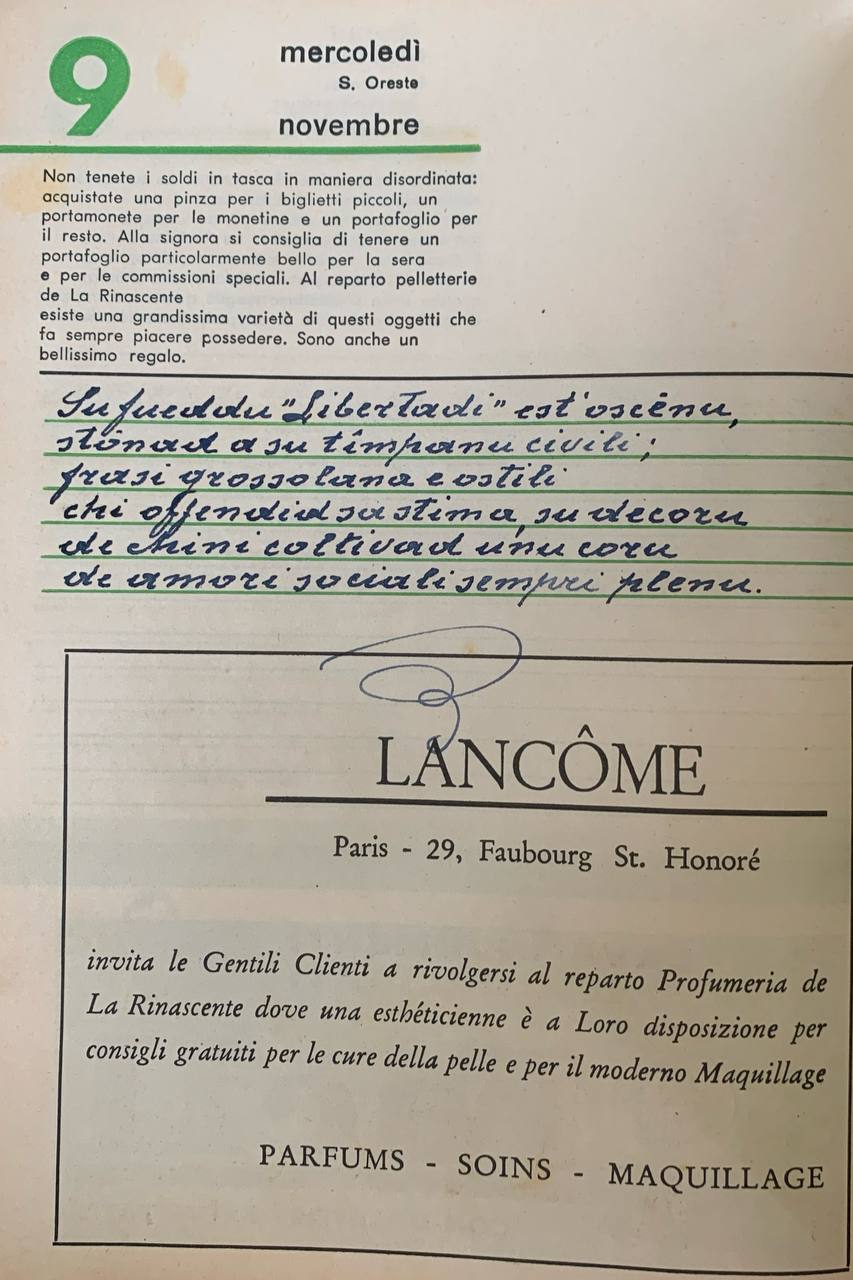 9
mercoledì
S. Oreste
novembre
Non tenete i soldi in tasca in maniera disordinata:
acquistate una pinza per i biglietti piccoli, un
portamonete per le monetine e un portafoglio per
il resto. Alla signora si consiglia di tenere un
portafoglio particolarmente bello per la sera
e per le commissioni speciali. Al reparto pelletterie
de La Rinascente
esiste una grandissima varietà di questi oggetti che
fa sempre piacere possedere. Sono anche un
bellissimo regalo.
Su fueddu "Libertadi" est' oscēnu,
stōnad a su tîmpanu civili;
frasi grossolana e ostili
chi offendid sa stima, su decoru
de chini coltivad unu coru
de amori sociali sempri plenu.
LANCÔME
Paris - 29, Faubourg St. Honoré
invita le Gentili Clienti a rivolgersi al reparto Profumeria de
La Rinascente dove una esthéticienne è a Loro disposizione per
consigli gratuiti per le cure della pelle e per il moderno Maquillage
PARFUMS - SOINS - MAQUILLAGE